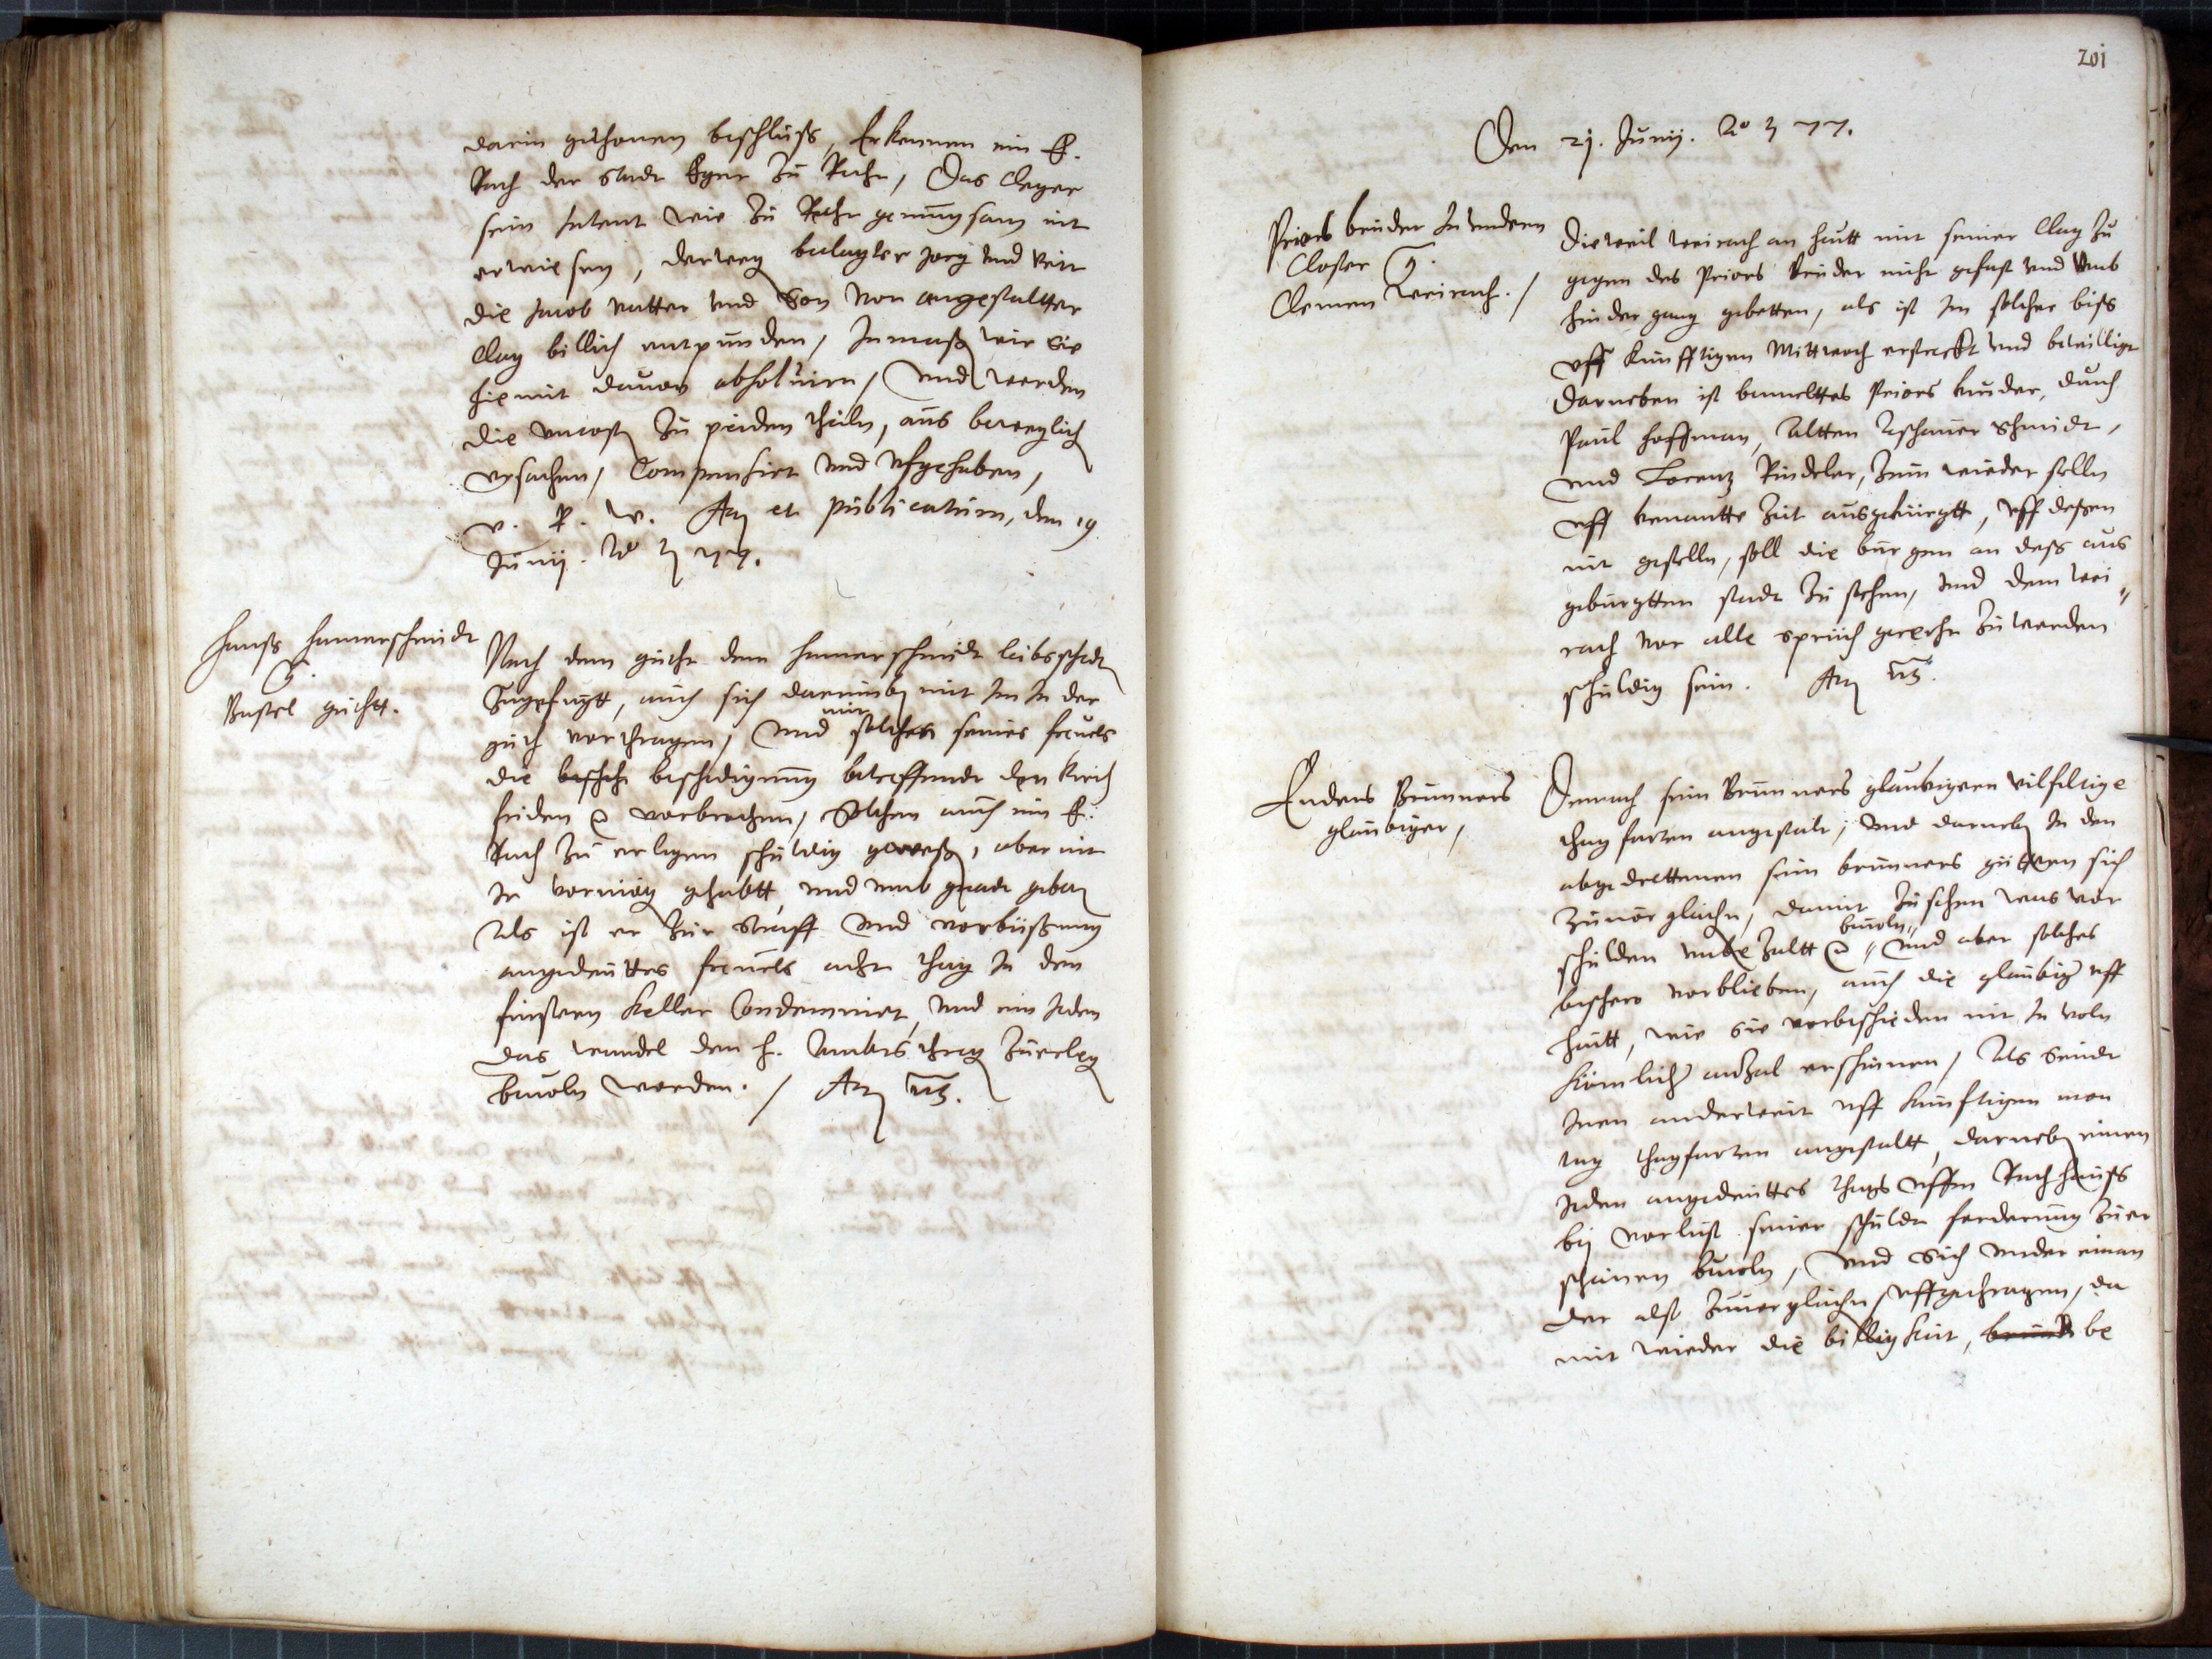 darin gethonen beschluß, Erkennen ein E.
Rath der Stadt Eger zu Recht, Das Cleger
sein Intent wie zu Recht genungsam nit
erwiesen, derweg beclagter Jorg und Veit
die Jacob vatter und Son von angestaltter
Clag billich entpunden, Inmaß wir Sie
hiemit davon absolviren, und werden
die uncost zu peiden theiln, aus beweglich
ursachen, Compensirt und ufgehaben,
v. R. w. Act et publicatum, den 19
Junij. Ao 77.
Hanß Hamerschmidt
Bastel
Nach dem dem Hamerschmidt leibsschadt
Zugefugtt, auch sich darumb mit Im In der
guth vortragen, und mit solchen seines frevels
die beschedigung betreffende den kirch
friden vorbrochen, Solchen auch ein E.
Rath zu erlegen schuldig geweß, aber nit
In vormög gehabtt und umb gnade gebet
Als ist er zur Straff und vorbüßung
angedeuttes frevels acht thag In den
finstern Keller Condemnirt, und ein Jdem
das wandel den h. zuerleg
bevoln worden. / Act ut s.
201
Den 21. Junij. Ao 77.
Priors bruder In undern
Closter
Clemen Weirach. /
Dieweil Weirach an heutt mit seiner Clag zu
gegen des Priors bruder nicht gefast und umb
hindergang gebetten, als ist Im solcher biß
uff kunfftigen Mittwoch erstreckt und bewilligt
Darneben ist bemelttes Priors bruder, durch
Paul Hoffman, Altten Schmidt,
und Lorentz Rindeler, zum wieder stelln
uff benantte Zeit ausgebürgtt, uff deßen
nit gestelln, soll die bürgen an deß aus
gebürgtten stadt zu stehen, und dem Wei
rach vor alle spruch gerecht zu werden
schuldig sein. Act ut s.
Enders Brunners
glaubiger,
Demnach sein Brunners glaubigern vilfeltige
thagfarten angestalt, und darneb In den
abgedrettenen sein brunners güttern sich
zuvorgleichn, damit zusehen was vor
schulden unbezaltt bevoln und aber solches
bishero vorblieben, auch die glaubig uff
heutt, wie sie vorbeschieden nit In voln
kömlicher anzal erschinen, Als Seindt
Inen anderweit uff kunftigen mon
tag thagfarten angestaltt, darneb einem
Jeden angedeuttes thags uffm Rathhauß
bey vorlust seiner schuldt forderung zuer
scheinen bevoln, und sich under einan
der alß zuvorgleichn, uffgethragen, da
mit wieder die billigkeit, be